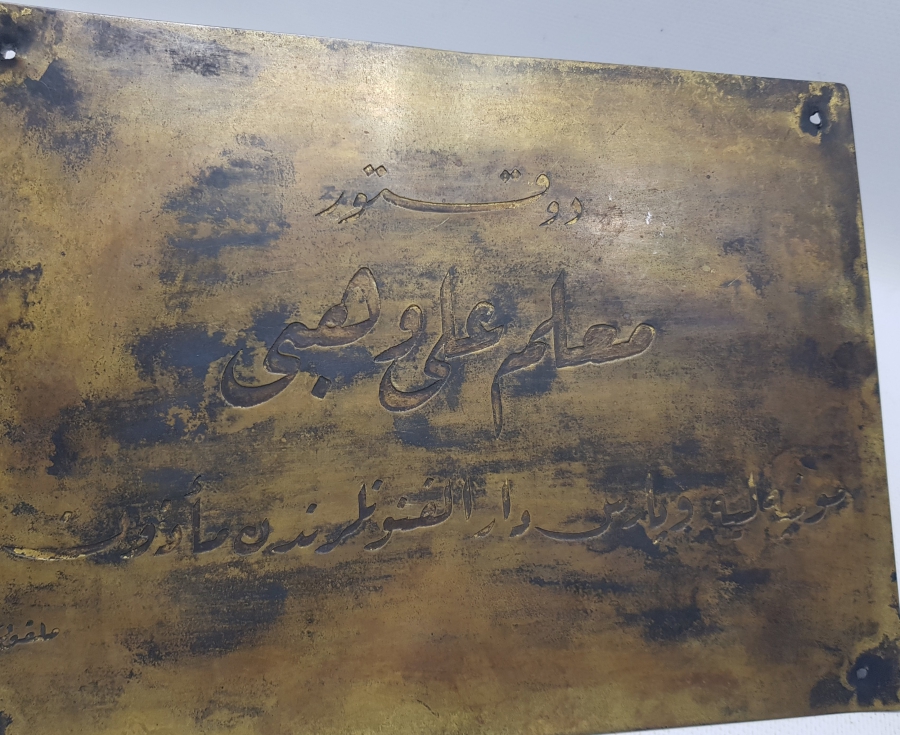 دوقتور
معلم علی وهبی
مونپه ليه و پارس دار الفنونلرندن مأذون